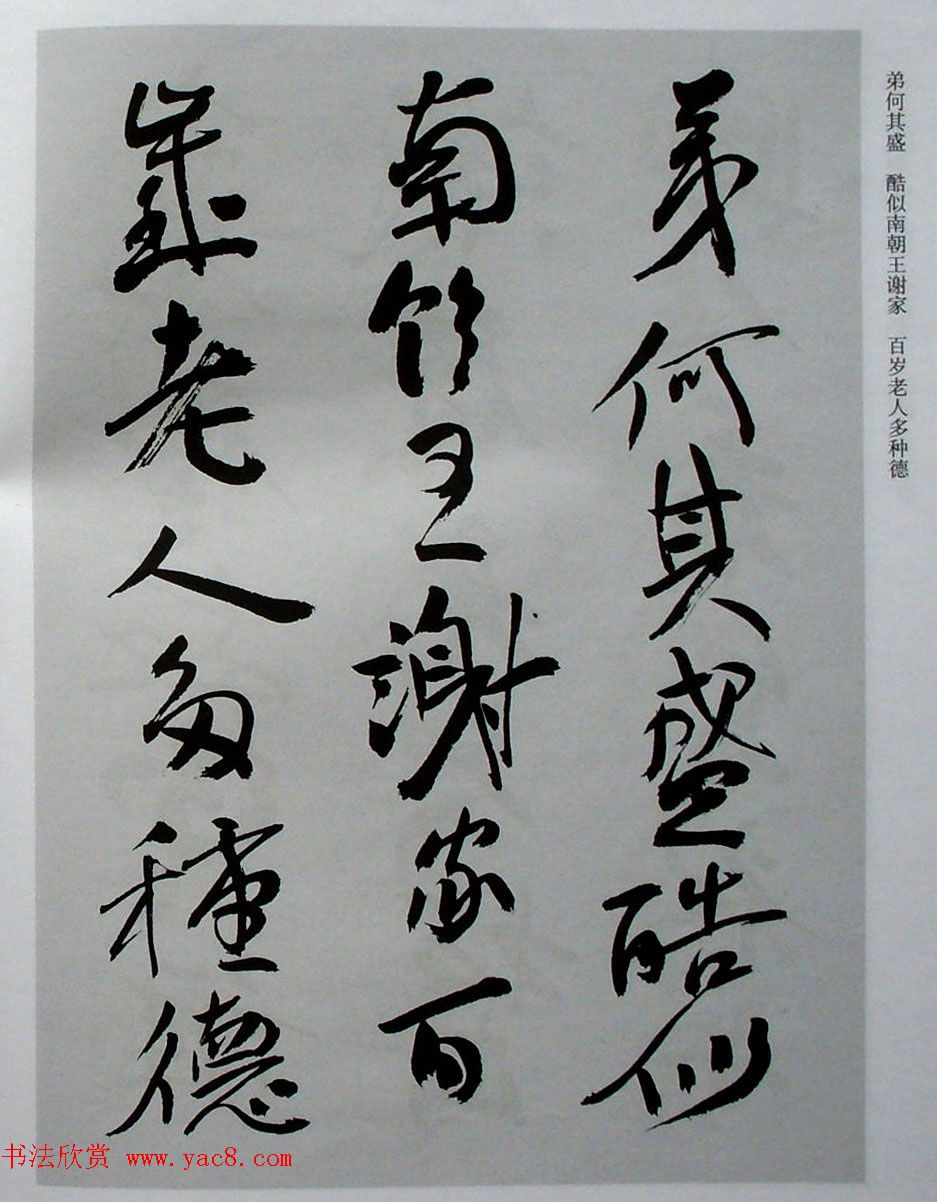 弟何其盛　酷似南朝王谢家　百岁老人多种德
弟何其盛酷似
南朝王謝家百
歲老人多種德
书法欣赏 www.yac8.com